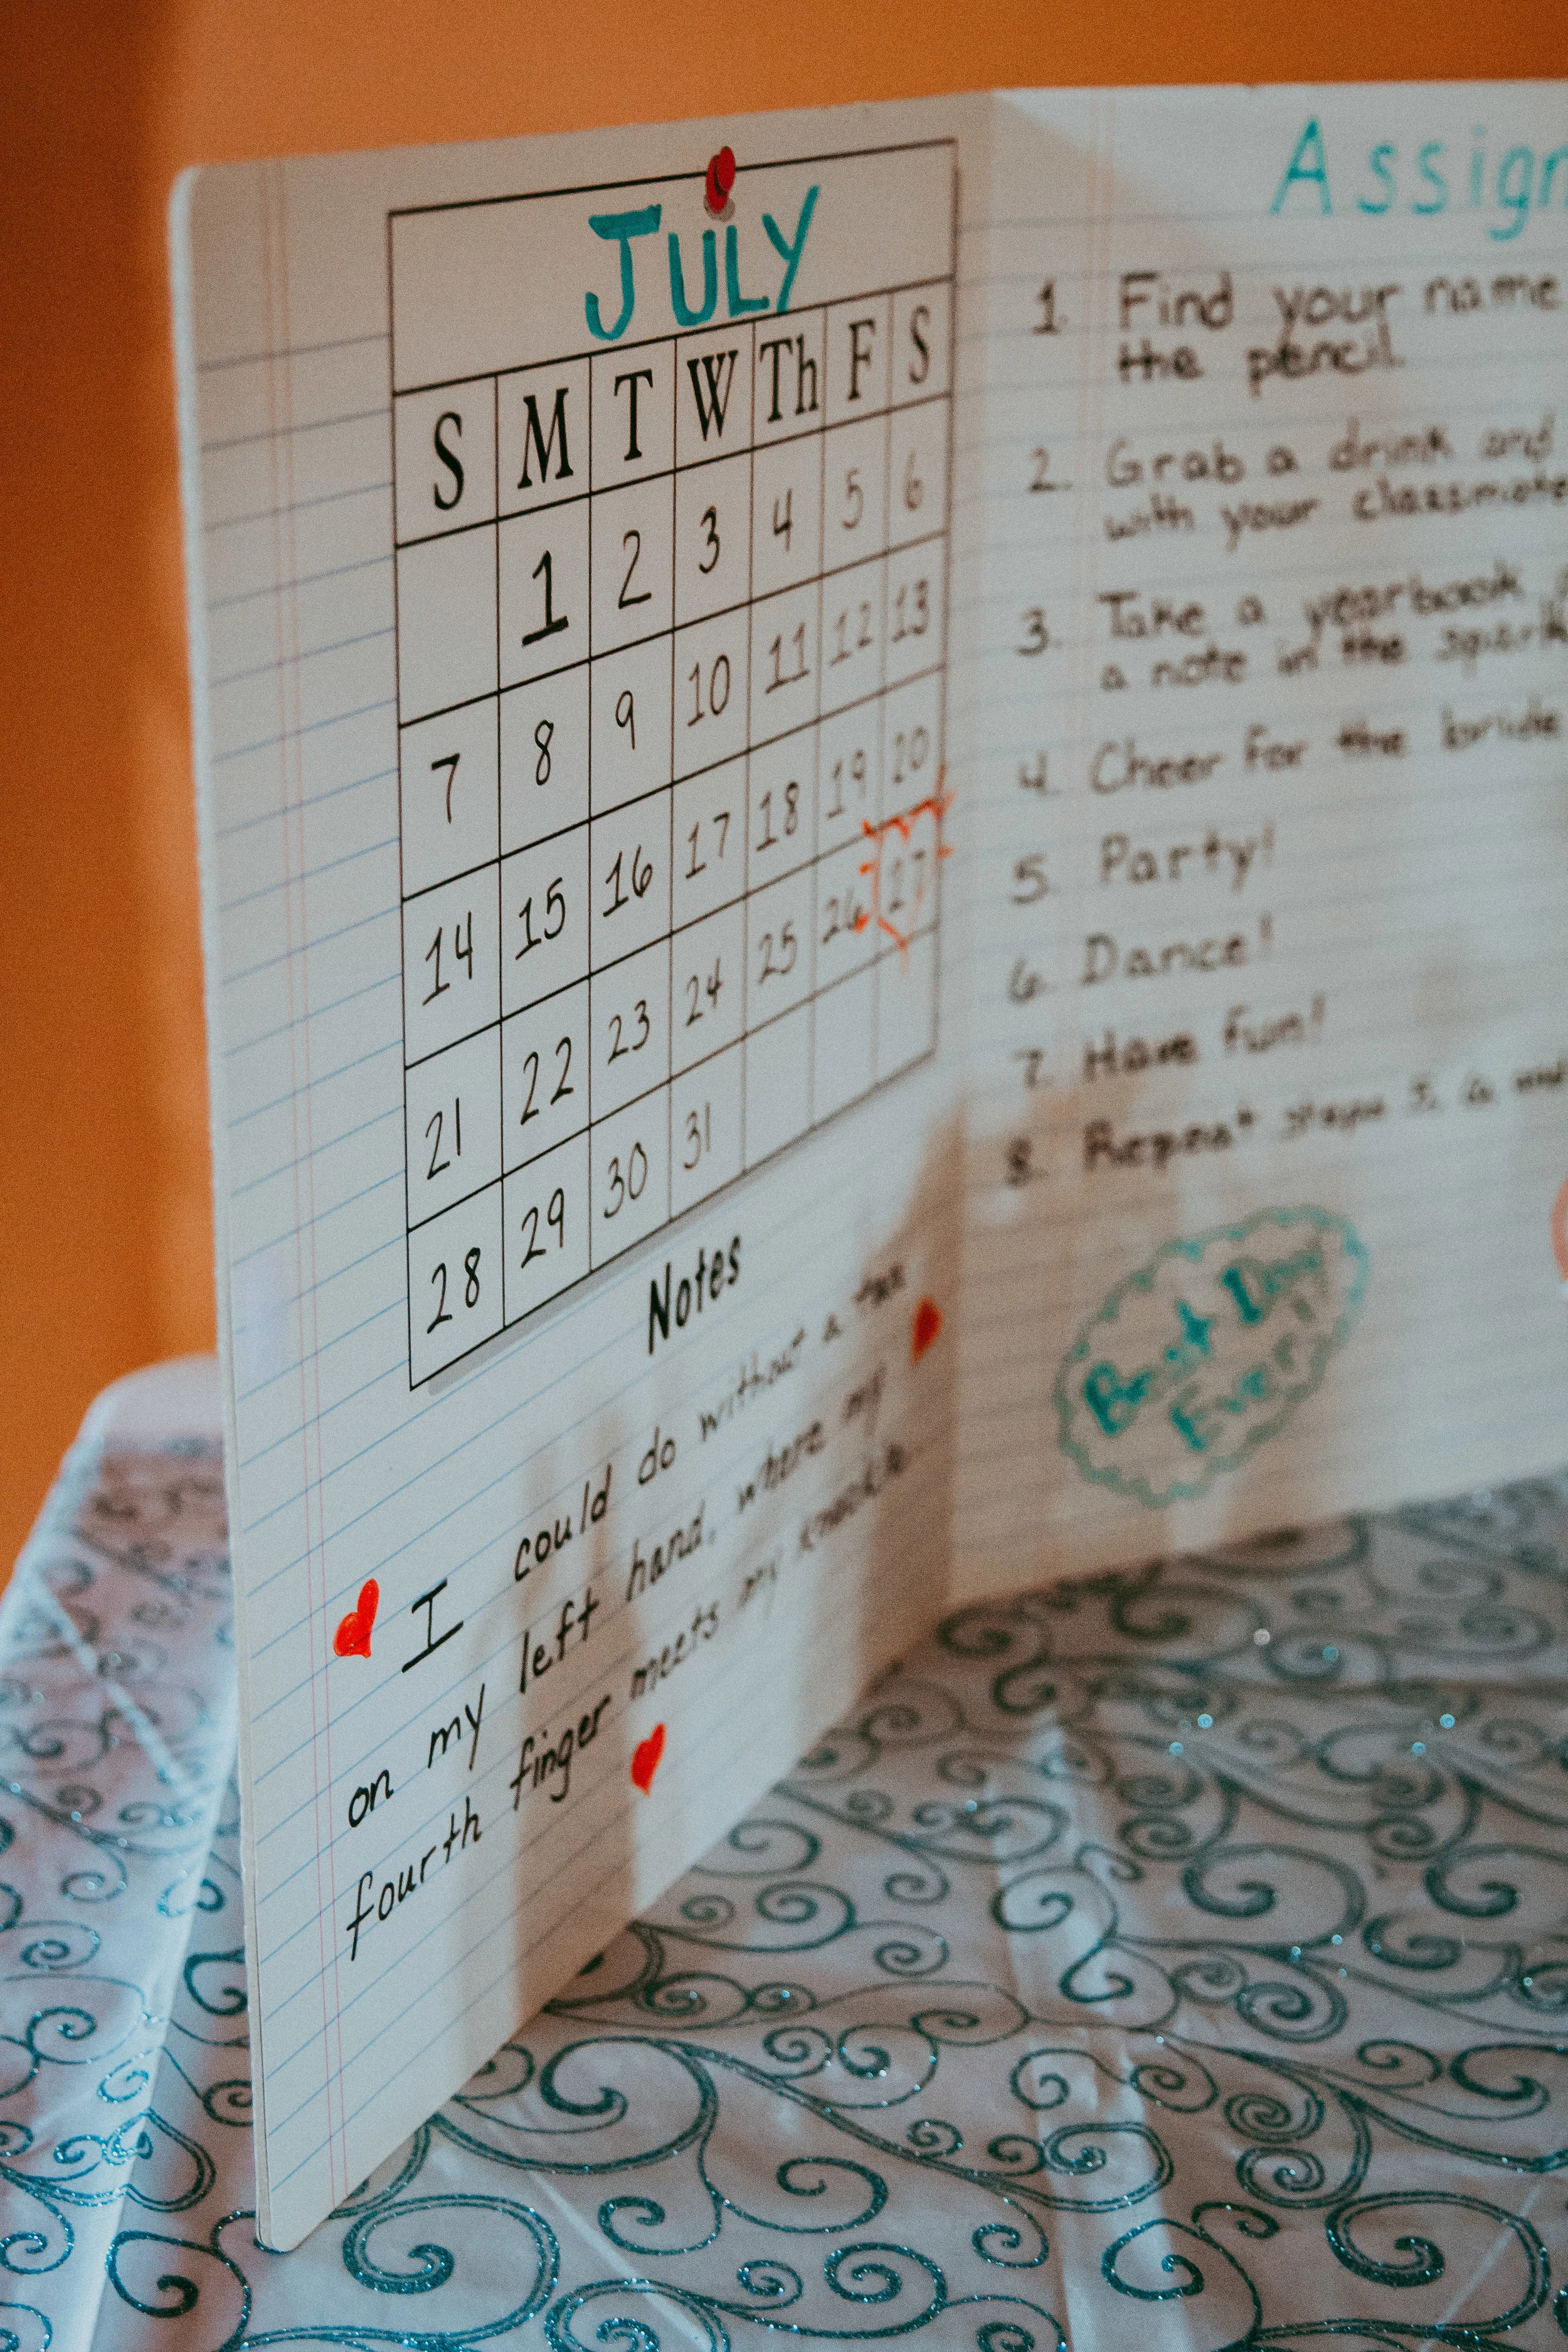 JULY
S M T W Th F S
1 2 3 4 5 6
7 8 9 10 11 12 13
14 15 16 17 18 19 20
21 22 23 24 25 26 27
28 29 30 31
Notes
I could do without a tan
on my left hand, where my
fourth finger meets my knuckle
Assign
1. Find your name
the pencil.
2. Grab a drink and
with your classmate
3. Take a yearbook
a note in the spark
4. Cheer for the bride
5. Party!
6. Dance!
7. Have fun!
8. Repeat steps 5, 6 and
Best Day
Ever!